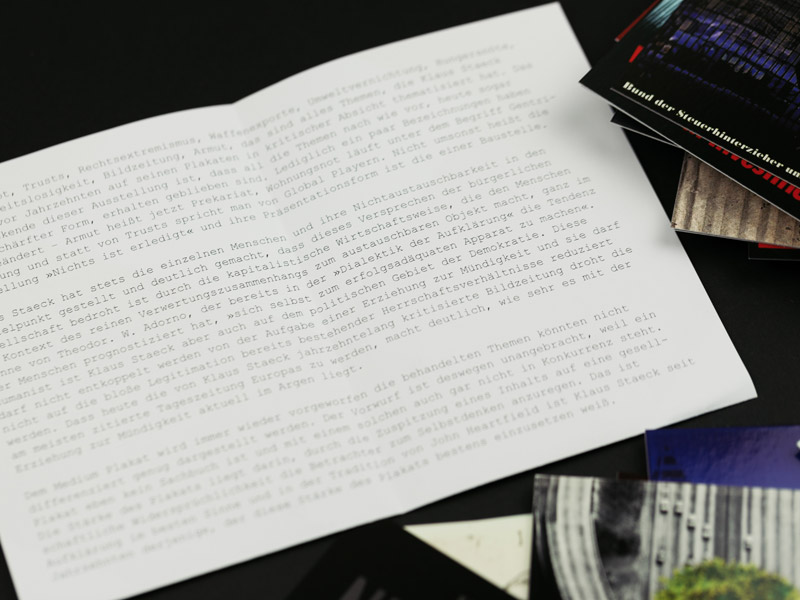 Trusts, Rechtsextremismus, Waffenexporte, Umweltvernichtung, Hungersnöte,
Arbeitslosigkeit, Bildzeitung, Armut, das sind alles Themen, die Klaus Staeck
vor Jahrzehnten auf seinen Plakaten in kritischer Absicht thematisiert hat. Das
dieser Ausstellung ist, dass all die Themen nach wie vor, heute sogar
Form, erhalten geblieben sind. Lediglich ein paar Bezeichnungen haben
– Armut heißt jetzt Prekariat, Wohnungsnot läuft unter dem Begriff Gentri-
und statt von Trusts spricht man von Global Playern. Nicht umsonst heißt die
»Nichts ist erledigt« und ihre Präsentationsform ist die einer Baustelle.
Staeck hat stets die einzelnen Menschen und ihre Nichtaustauschbarkeit in den
gestellt und deutlich gemacht, dass dieses Versprechen der bürgerlichen
bedroht ist durch die kapitalistische Wirtschaftsweise, die den Menschen
Kontext des reinen Verwertungszusammenhangs zum austauschbaren Objekt macht, ganz im
von Theodor. W. Adorno, der bereits in der »Dialektik der Aufklärung« die Tendenz
der Menschen prognostiziert hat, »sich selbst zum erfolgsadäquaten Apparat zu machen«.
ist Klaus Staeck aber auch auf dem politischen Gebiet der Demokratie. Diese
darf nicht entkoppelt werden von der Aufgabe einer Erziehung zur Mündigkeit und sie darf
nicht auf die bloße Legitimation bereits bestehender Herrschaftsverhältnisse reduziert
werden. Dass heute die von Klaus Staeck jahrzehntelang kritisierte Bildzeitung droht die
am meisten zitierte Tageszeitung Europas zu werden, macht deutlich, wie sehr es mit der
Erziehung zur Mündigkeit aktuell im Argen liegt.
Dem Medium Plakat wird immer wieder vorgeworfen die behandelten Themen könnten nicht
differenziert genug dargestellt werden. Der Vorwurf ist deswegen unangebracht, weil ein
Plakat eben kein Sachbuch ist und mit einem solchen auch gar nicht in Konkurrenz steht.
Die Stärke des Plakats liegt darin, durch die Zuspitzung eines Inhalts auf eine gesell-
schaftliche Widersprüchlichkeit die Betrachter zum Selbstdenken anzuregen. Das ist
Aufklärung im besten Sinne und in der Tradition von John Heartfield ist Klaus Staeck seit
Jahrzehnten derjenige, der diese Stärke des Plakats bestens einzusetzen weiß.
Bund der Steuerhinterzieher